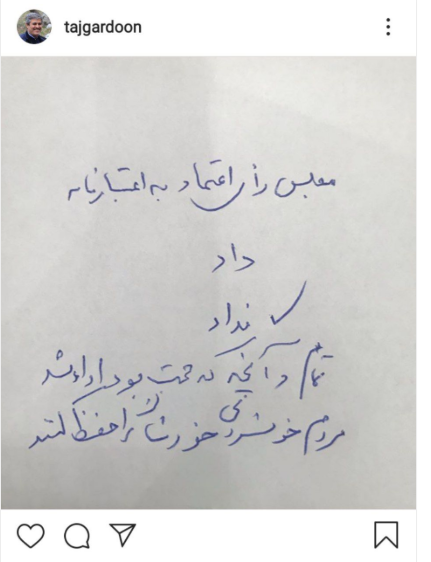 tajgardoon
مجلس رأی اعتماد به اعتبارنامه
داد
نداد ✓
تمام و آنچه که حجت بود ادا شد
مردم خونسردی خودشان را حفظ کنند